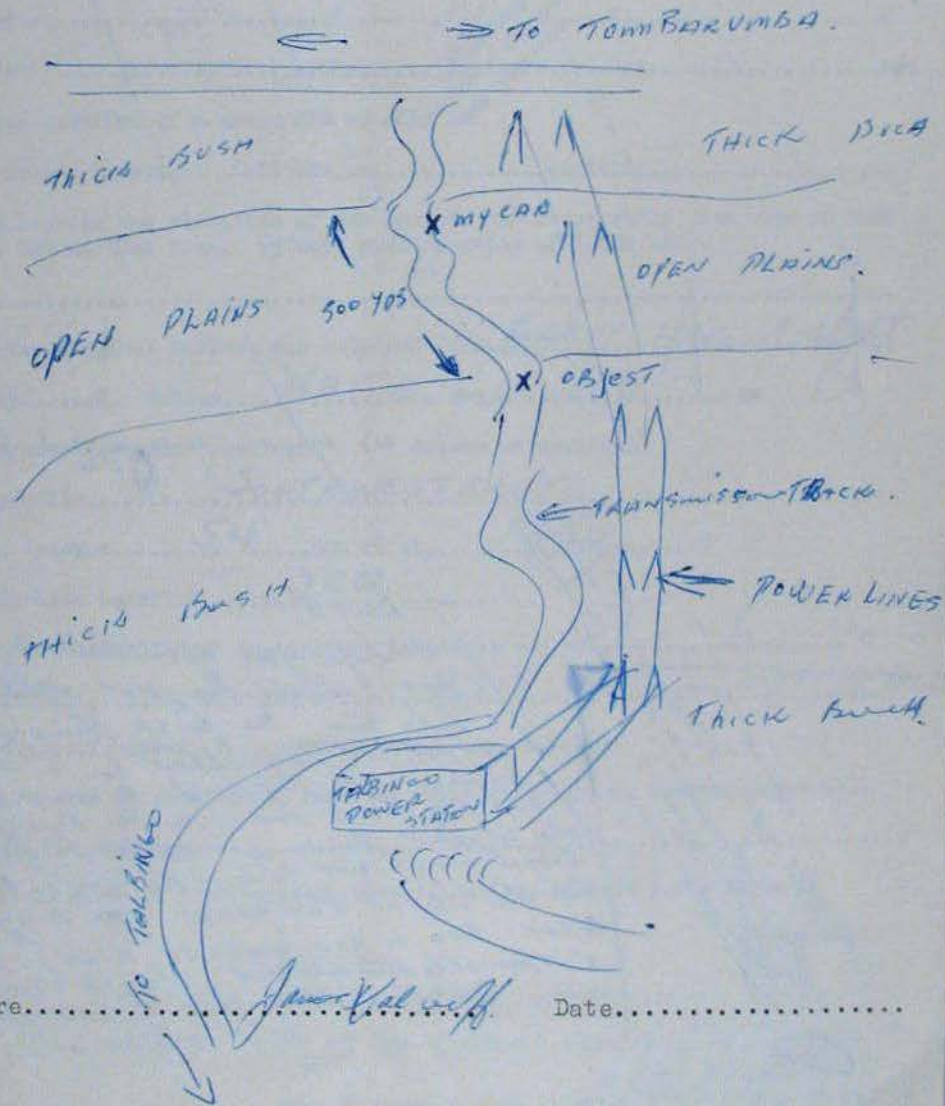 TO TOMMBARUMBA.
THICK BUSH
THICK
X MY CAR
OPEN PLAINS.
OPEN PLAINS
500 YDS
X OBJEST
TRANSMISSON TRACK.
THICK BUSH
POWER LINES
THICK
TALBINGO
POWER
STATION
TO TALBINGO
re.......... Date..........